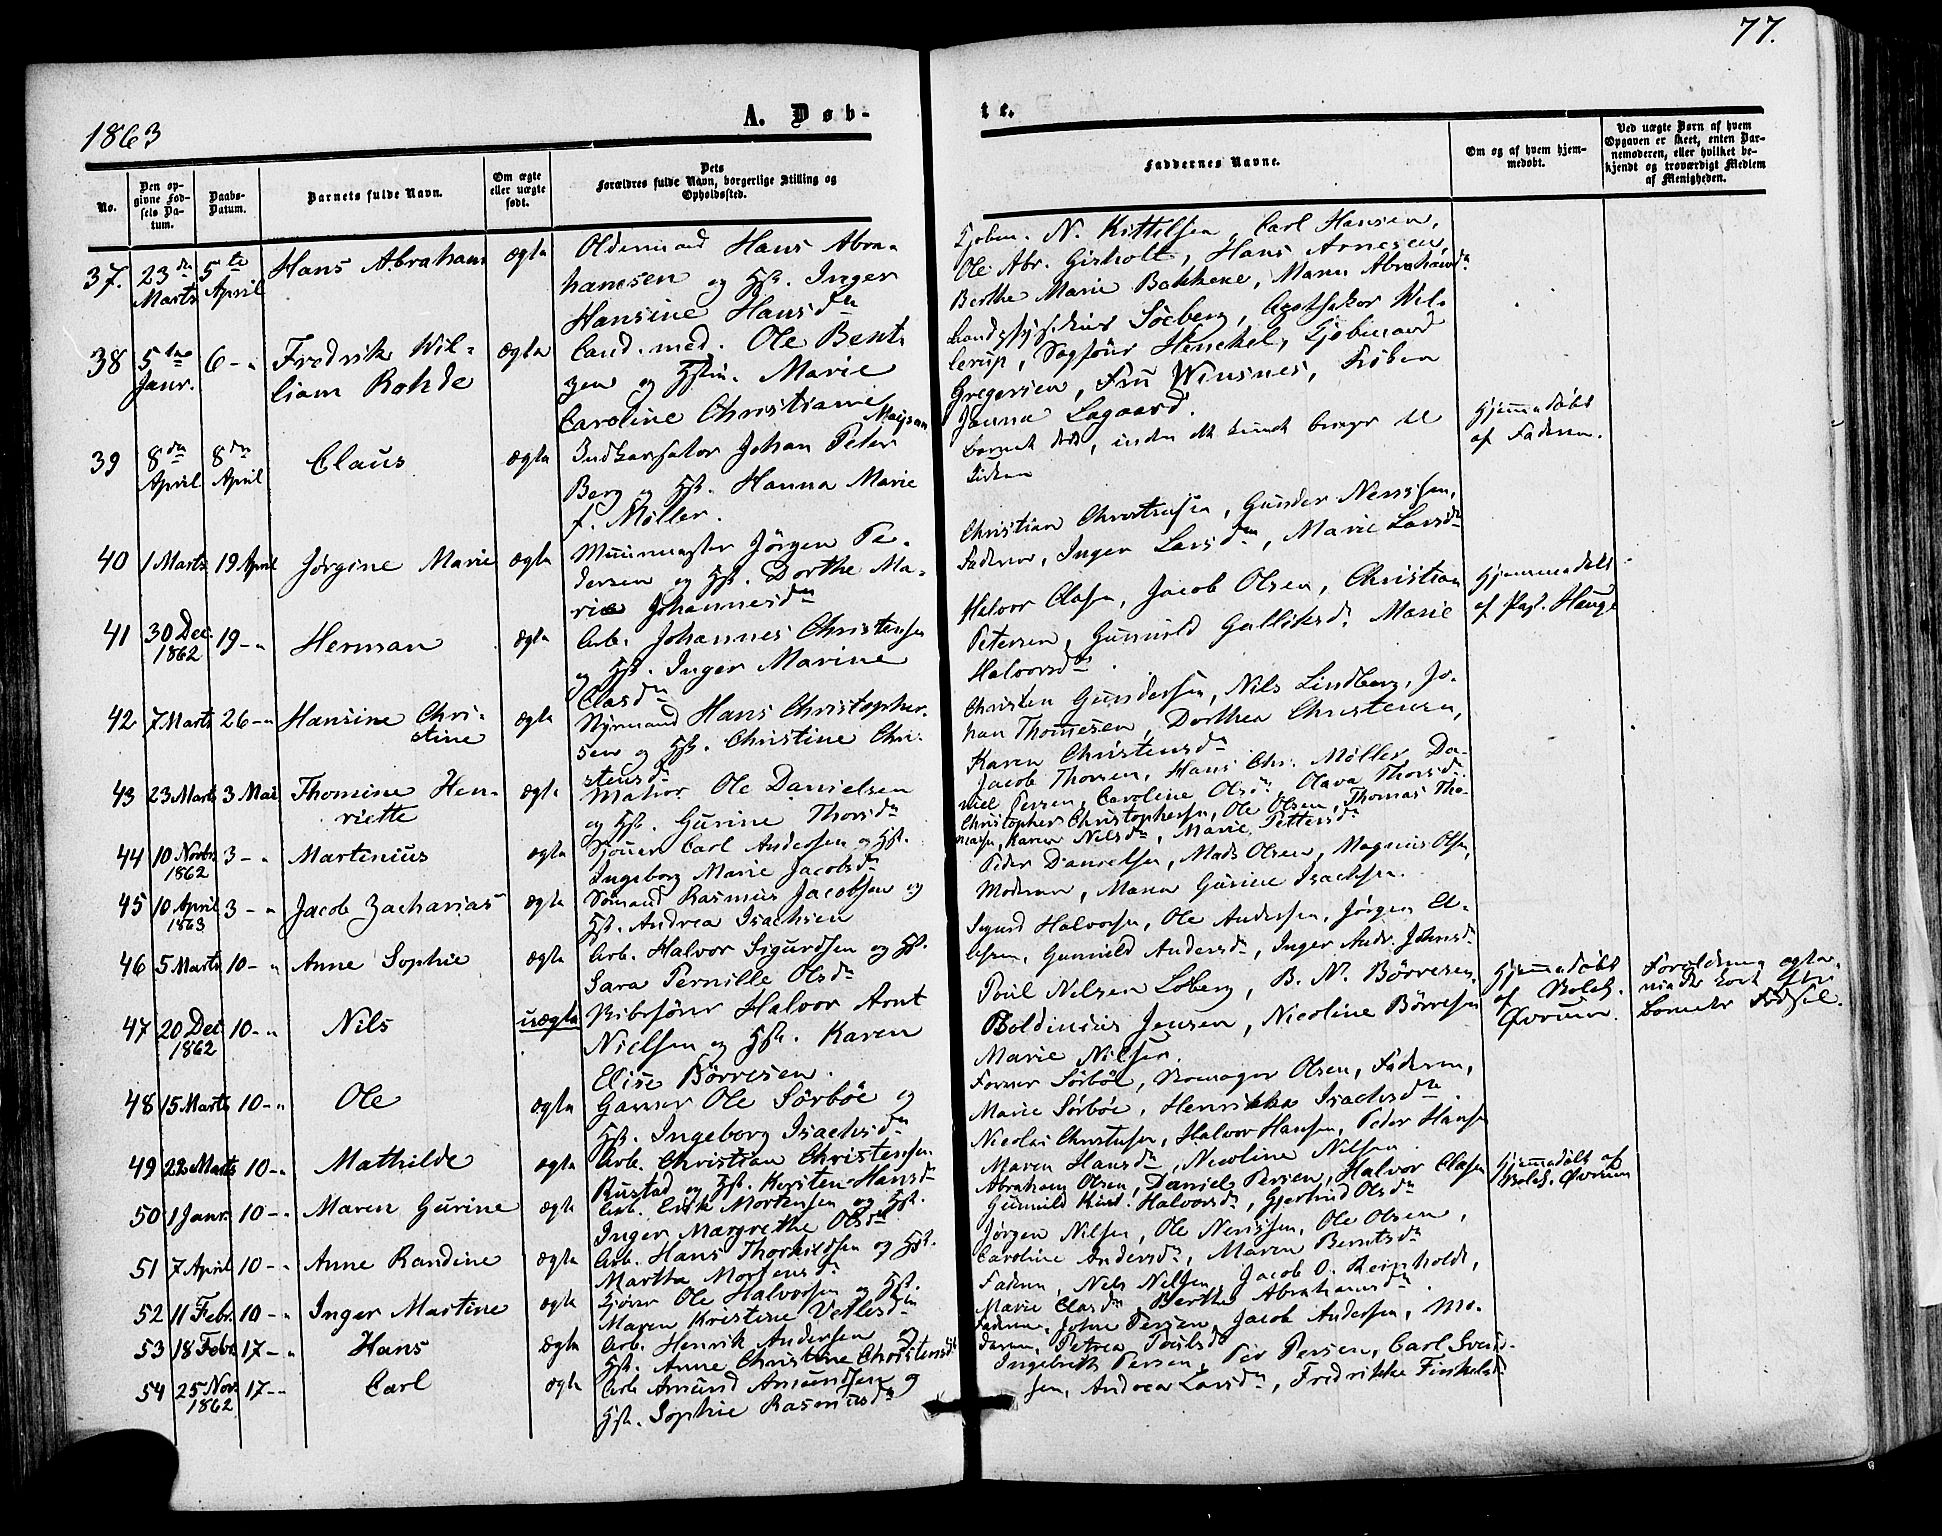 77.
1863
A. Døb-
te.
No.
Den op-
givne Fød-
sels Da-
tum.
Daabs-
Datum.
Barnets fulde Navn.
Om ægte
eller uægte
født.
Dets
Forældres fulde Navn, borgerlige Stilling og
Opholdssted.
Faddernes Navne.
Om og af hvem hjem-
medøbt.
Ved uægte Børn af hvem
Opgaven er skeet, enten Bar-
nemoderen, eller hvilket be-
kjendt og troværdigt Medlem
af Menigheden.
37. 23de Marts 5te April Hans Abraham ægte
Oldermand Hans Abra-
hamsen og Hst. Inger
Hansine Hansdtr
Kjøbm. N. Kittilsen, Carl Hansen,
Ole Abr. Gisholt, Hans Arnesen,
Berthe Marie Bakkene, Maren Abrahamsdtr
38 5te Janr. 6 - " Fredrik Wil-
liam Rohde ægte
Cand. med. Ole Bent-
zen og Hstru. Marie
Caroline Christiane Møysen
Søeberg, Apotheker Wil-
lerup, Sagfører Henckel, Kjøbmand
Gregersen, Fru Winsnes, Frøken
Janna Aagaard.
39 8de April 8de April Claus ægte
Johan Peter
Berg og Hst. Hanna Marie
f. Møller.
Barnet døde, inden det kunde bringes til
Kirken
Hjemmedøbt
af Faderen.
40 1 Marts 19 April Jørgine Marie ægte
Muurmester Jörgen Pe-
dersen og Hst. Dorthe Ma-
rie Johannesdtr
Christian Christensen, Gunder Nenssen,
Faderen, Inger Larsdtr, Marie Larsdtr
41 30 Dec. 1862 19 - " Herman ægte
Arb. Johannes Christensen
og Hst. Inger Marine
Clasdtr
Halvor Clasen, Jacob Olsen, Christian
Petersen, Gunnild Gulliksd. Marie
Halvorsdtr.
Hjemmedøbt
af Past. Hauge
42 7 Marts 26 - " Hansine Chri-
stine ægte
Styrmand Hans Christopher-
sen og Hst. Christine Chri-
stensdtr
Christen Gundersen, Nils Lindberg, Jo-
han Thomesen, Dorthea Christensen,
Karen Christensdtr
43 23 Marts 3 Mai Thomine Hen-
riette ægte
Matros Ole Danielsen
og Hst. Gurine Thorsdtr
Jacob Thorsen, Hans Chr. Møller, Da-
niel Persen, Caroline Olsdtr, Olava Thorsdtr
44 10 Novbr. 1862 3 - " Martinius ægte
Carl Andersen og Hst.
Ingeborg Marie Jacobsdtr
Christopher Christophersen, Ole Olsen, Thomas Tho-
masen, Karen Nilsdtr, Marie Pettersdtr
45 10 April 1863 3 - " Jacob Zacharias ægte
Sömand Rasmus Jacobsen og
Hst. Andrea Isachsen
Peder Danielsen, Mads Olsen, Magnus Olsen,
Moderen, Maren Gurine Isachsen.
46 5 Marts 10 - " Anne Sophie ægte
Arb. Halvor Sigurdsen og Hst.
Sara Pernille Olsdtr
Sigurd Halvorsen, Ole Andersen, Jörgen El-
lefsen, Gunnild Andersdtr, Inger Andr. Johnsdtr
47 20 Dec 1862 10 - " Nils uægte
Skibsförer Halvor Arnt
Nielsen og Hst. Karen
Elise Börresen.
Poul Nilsen Loberg, B. N. Börresen,
Boldinius Jensen, Nicoline Börresen
Marie Nilsen.
Hjemmedøbt
af Øvrum.
Forældrene ægte-
viede kort efter
Barnets Fødsel.
48 15 Marts 10 - " Ole ægte
Garver Ole Sörböe og
Hst. Ingeborg Isachsdtr
Former Sörböe, Skomager Olsen, Faderen,
Marie Sörböe, Henrikka Isachsdtr
49 22 Marts 10 - " Mathilde ægte
Arb. Christian Christensen
Rustad og Hst. Kirsten Hansdtr
Nicolai Christensen, Halvor Hansen, Peder Hansen
Maren Hansdtr, Nicoline Nilsen
50 1 Janr. 10 - " Maren Gurine ægte
Arb. Erik Mortensen og Hst.
Inger Margrethe Olsdtr
Abraham Olsen, Daniel Persen, Halvor Clasen
Gunnild Halvorsdtr, Gjertrud Olsdtr
Hjemmedøbt af
Øvrum
51 7 April 10 - " Anne Randine ægte
Arb. Hans Thorkildsen og Hst.
Martha Mortensdtr
Jörgen Nilsen, Ole Nenssen, Ole Olsen,
Caroline Andersdtr, Maren Berntsdtr
52 11 Febr. 10 - " Inger Martine ægte
Ole Halvorsen og Hst.
Maren Kristine Vetlesdtr
Faderen, Nils Nilsen, Jacob O. Reinholdt,
Marie Clasdtr, Berthe Abrahamsdtr.
53 18 Febr. 17 - " Hans ægte
Arb. Henrik Andersen og
Hst. Anne Christine Christensdtr
Faderen, John Persen, Jacob Andersen, Mo-
deren, Petrea Poulsdtr
54 25 Nov. 1862 17 - Carl ægte
Arb. Amund Amundsen og
Hst. Sophie Rasmusdtr
Ingebrikt Persen, Per Persen, Carl Svend-
sen, Andrea Larsdtr, Fredrikke